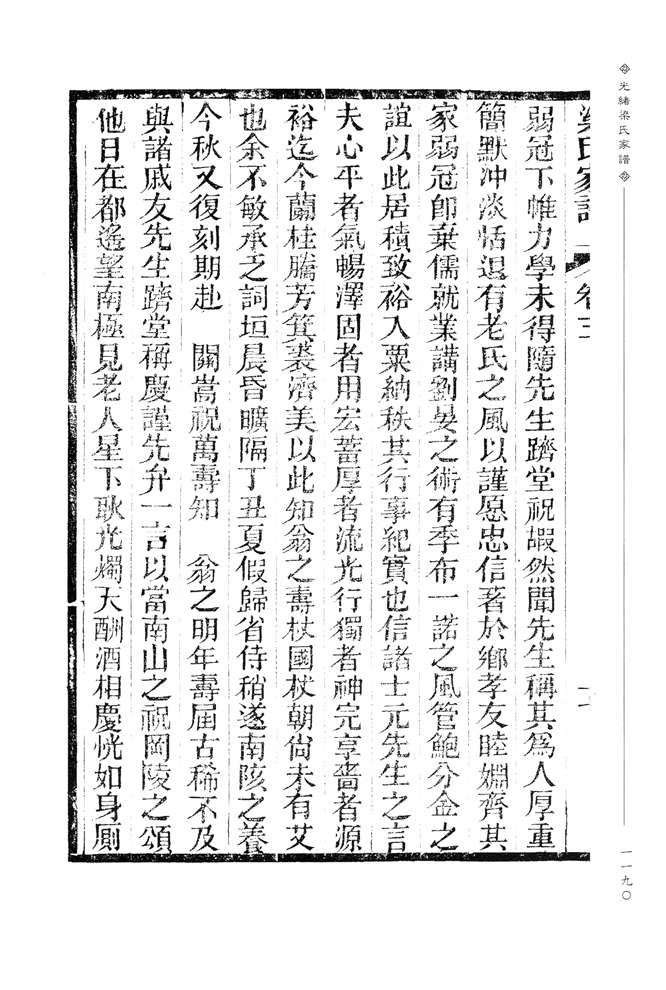 光緒梁氏家譜
一一九〇
梁氏家譜 卷三
弱冠下帷力學未得隨先生躋堂祝嘏然聞先生稱其爲人厚重
簡默冲淡恬退有老氏之風以謹愿忠信著於鄉孝友睦婣齊其
家弱冠卽棄儒就業講劉晏之術有季布一諾之風管鮑分金之
誼以此居積致裕入粟納秩其行事紀實也信諸士元先生之言
夫心平者氣暢澤固者用宏蓄厚者流光行獨者神完享嗇者源
裕迄今蘭桂騰芳箕裘濟美以此知翁之壽杖國杖朝尙未有艾
也余不敏承乏詞垣晨昏曠隔丁丑夏假歸省侍稍遂南陔之養
今秋又復刻期赴 闕嵩祝萬壽知 翁之明年壽屆古稀不及
與諸戚友先生躋堂稱慶謹先弁一言以當南山之祝岡陵之頌
他日在都遙望南極見老人星下耿光燭天酬酒相慶恍如身厠